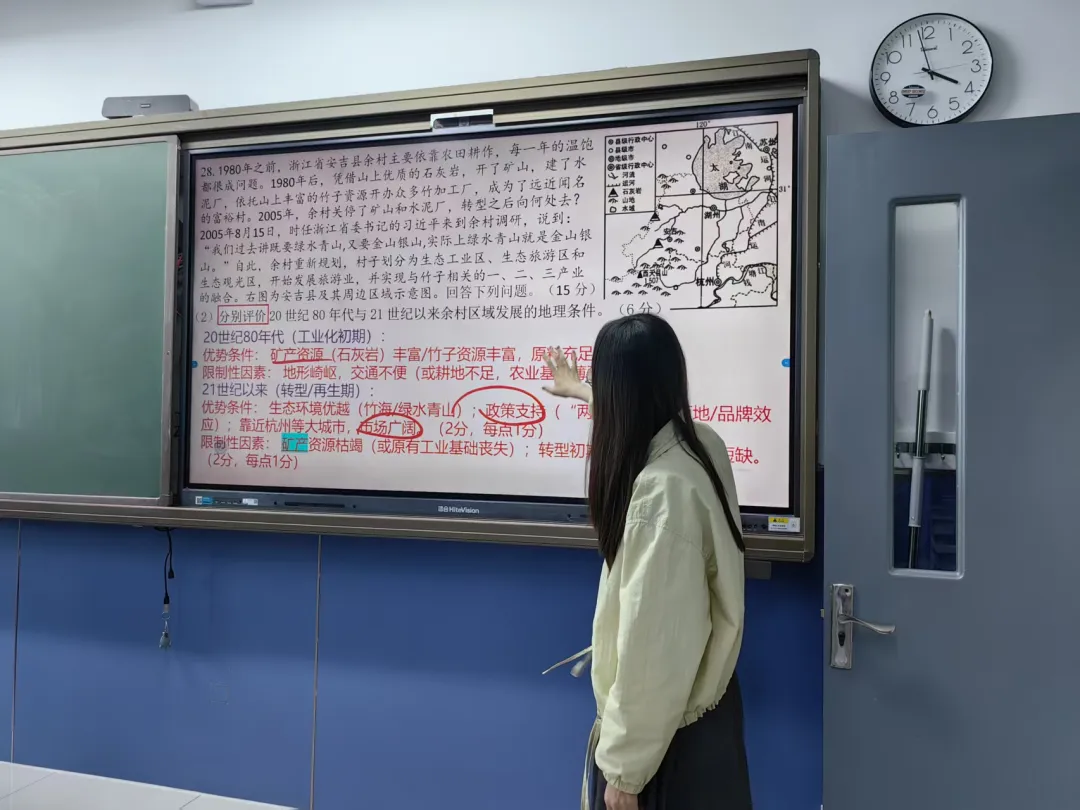 28. 1980年之前，浙江省安吉县余村主要依靠农田耕作，每一年的温饱
都很成问题。1980年后，凭借山上优质的石灰岩，开了矿山，建了水
泥厂，依托山上丰富的竹子资源开办众多竹加工厂，成为了远近闻名
的富裕村。2005年，余村关停了矿山和水泥厂，转型之后向何处去？
2005年8月15日，时任浙江省委书记的习近平来到余村调研，说到：
“我们过去讲既要绿水青山,又要金山银山,实际上绿水青山就是金山银
山。”自此，余村重新规划，村子划分为生态工业区、生态旅游区和
生态观光区，开始发展旅游业，并实现与竹子相关的一、二、三产业
的融合。右图为安吉县及其周边区域示意图。回答下列问题。（15 分）
（2）分别评价20世纪80年代与21世纪以来余村区域发展的地理条件。（6分）
20世纪80年代（工业化初期）：
优势条件：矿产资源（石灰岩）丰富/竹子资源丰富，原料充足
限制性因素：地形崎岖，交通不便（或耕地不足，农业基
21世纪以来（转型/再生期）：
优势条件：生态环境优越（竹海/绿水青山）；政策支持（“两 地/品牌效
应）；靠近杭州等大城市，市场广阔。（2分，每点1分）
限制性因素：矿产资源枯竭（或原有工业基础丧失）；转型初 短缺。
（2分，每点1分）
120°
县级行政中心
县级市
地级市
省级行政中心
河流
运河
石灰岩
山地
水域
苏州
湖
31°
湖州
安吉
西天目山
1507
杭州
HiteVision
12
1
2
3
4
5
6
7
8
9
10
11